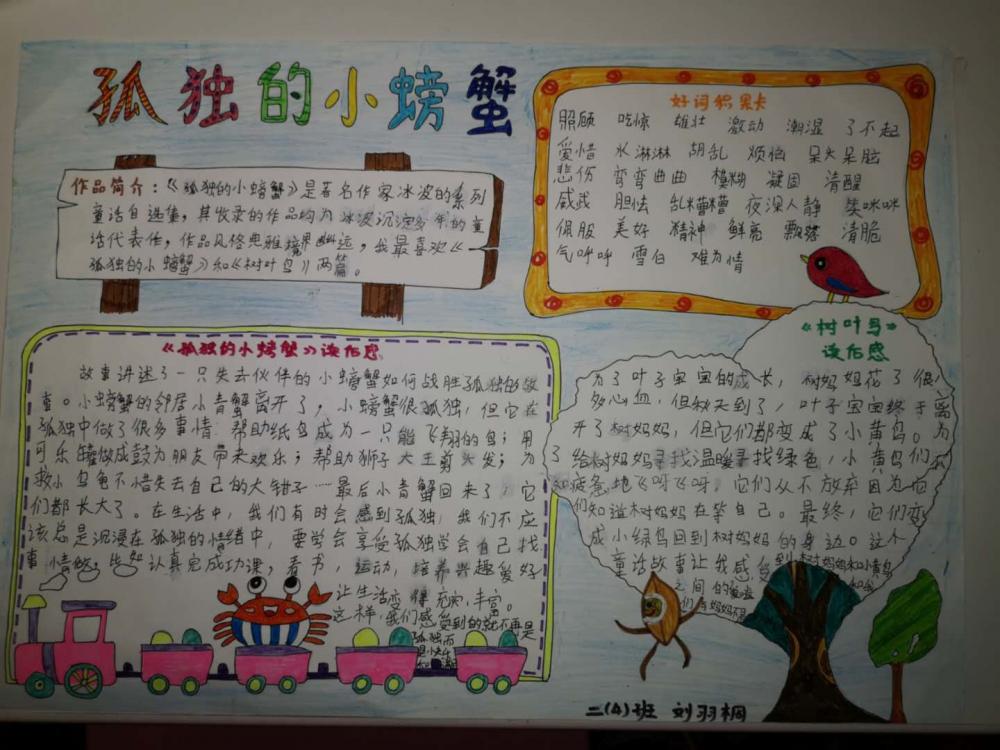 孤独的小螃蟹
作品简介:《孤独的小螃蟹》是著名作家冰波的系列
童话自选集,其收录的作品均为冰波沉淀多年的童
话代表作,作品风格典雅境界幽远,我最喜欢《
孤独的小螃蟹》和《树叶鸟》两篇。
好词积累卡
照顾 吃惊 雄壮 激动 潮湿 了不起
爱惜 水淋淋 胡乱 烦恼 呆头呆脑
悲伤 弯弯曲曲 模糊 凝固 清醒
威武 胆怯 乱糟糟 夜深人静 笑咪咪
佩服 美好 精神 鲜亮 飘落 清脆
气呼呼 雪白 难为情
《孤独的小螃蟹》读后感
故事讲述了一只失去伙伴的小螃蟹如何战胜孤独的故
事。小螃蟹的邻居小青蟹离开了,小螃蟹很孤独,但它在
孤独中做了很多事情:帮助纸鸟成为一只能飞翔的鸟;用
可乐罐做成鼓为朋友带来欢乐;帮助狮子大王剪头发;为
救小乌龟不惜失去自己的大钳子……最后小青蟹回来了,它
们都长大了。在生活中,我们有时会感到孤独,我们不应
该总是沉浸在孤独的情绪中,要学会享受孤独学会自己找
事情做,比如认真完成功课,看书,运动,培养兴趣爱好
让生活变得充实,丰富。
这样,我们感受到的就不再是
孤独而
是快乐
《树叶鸟》
读后感
为了叶子宝宝的成长,树妈妈花了很
多心血,但秋天到了,叶子宝宝终于离
开了树妈妈,但它们都变成了小黄鸟。为
了给树妈妈寻找温暖寻找绿色,小黄鸟们不
知疲惫地飞呀飞呀,它们从不放弃因为它
们知道树妈妈在等自己。最终,它们变
成小绿鸟回到树妈妈的身边。这个
童话故事让我感受到树妈妈和小黄鸟
之间的
二(4)班 刘羽桐